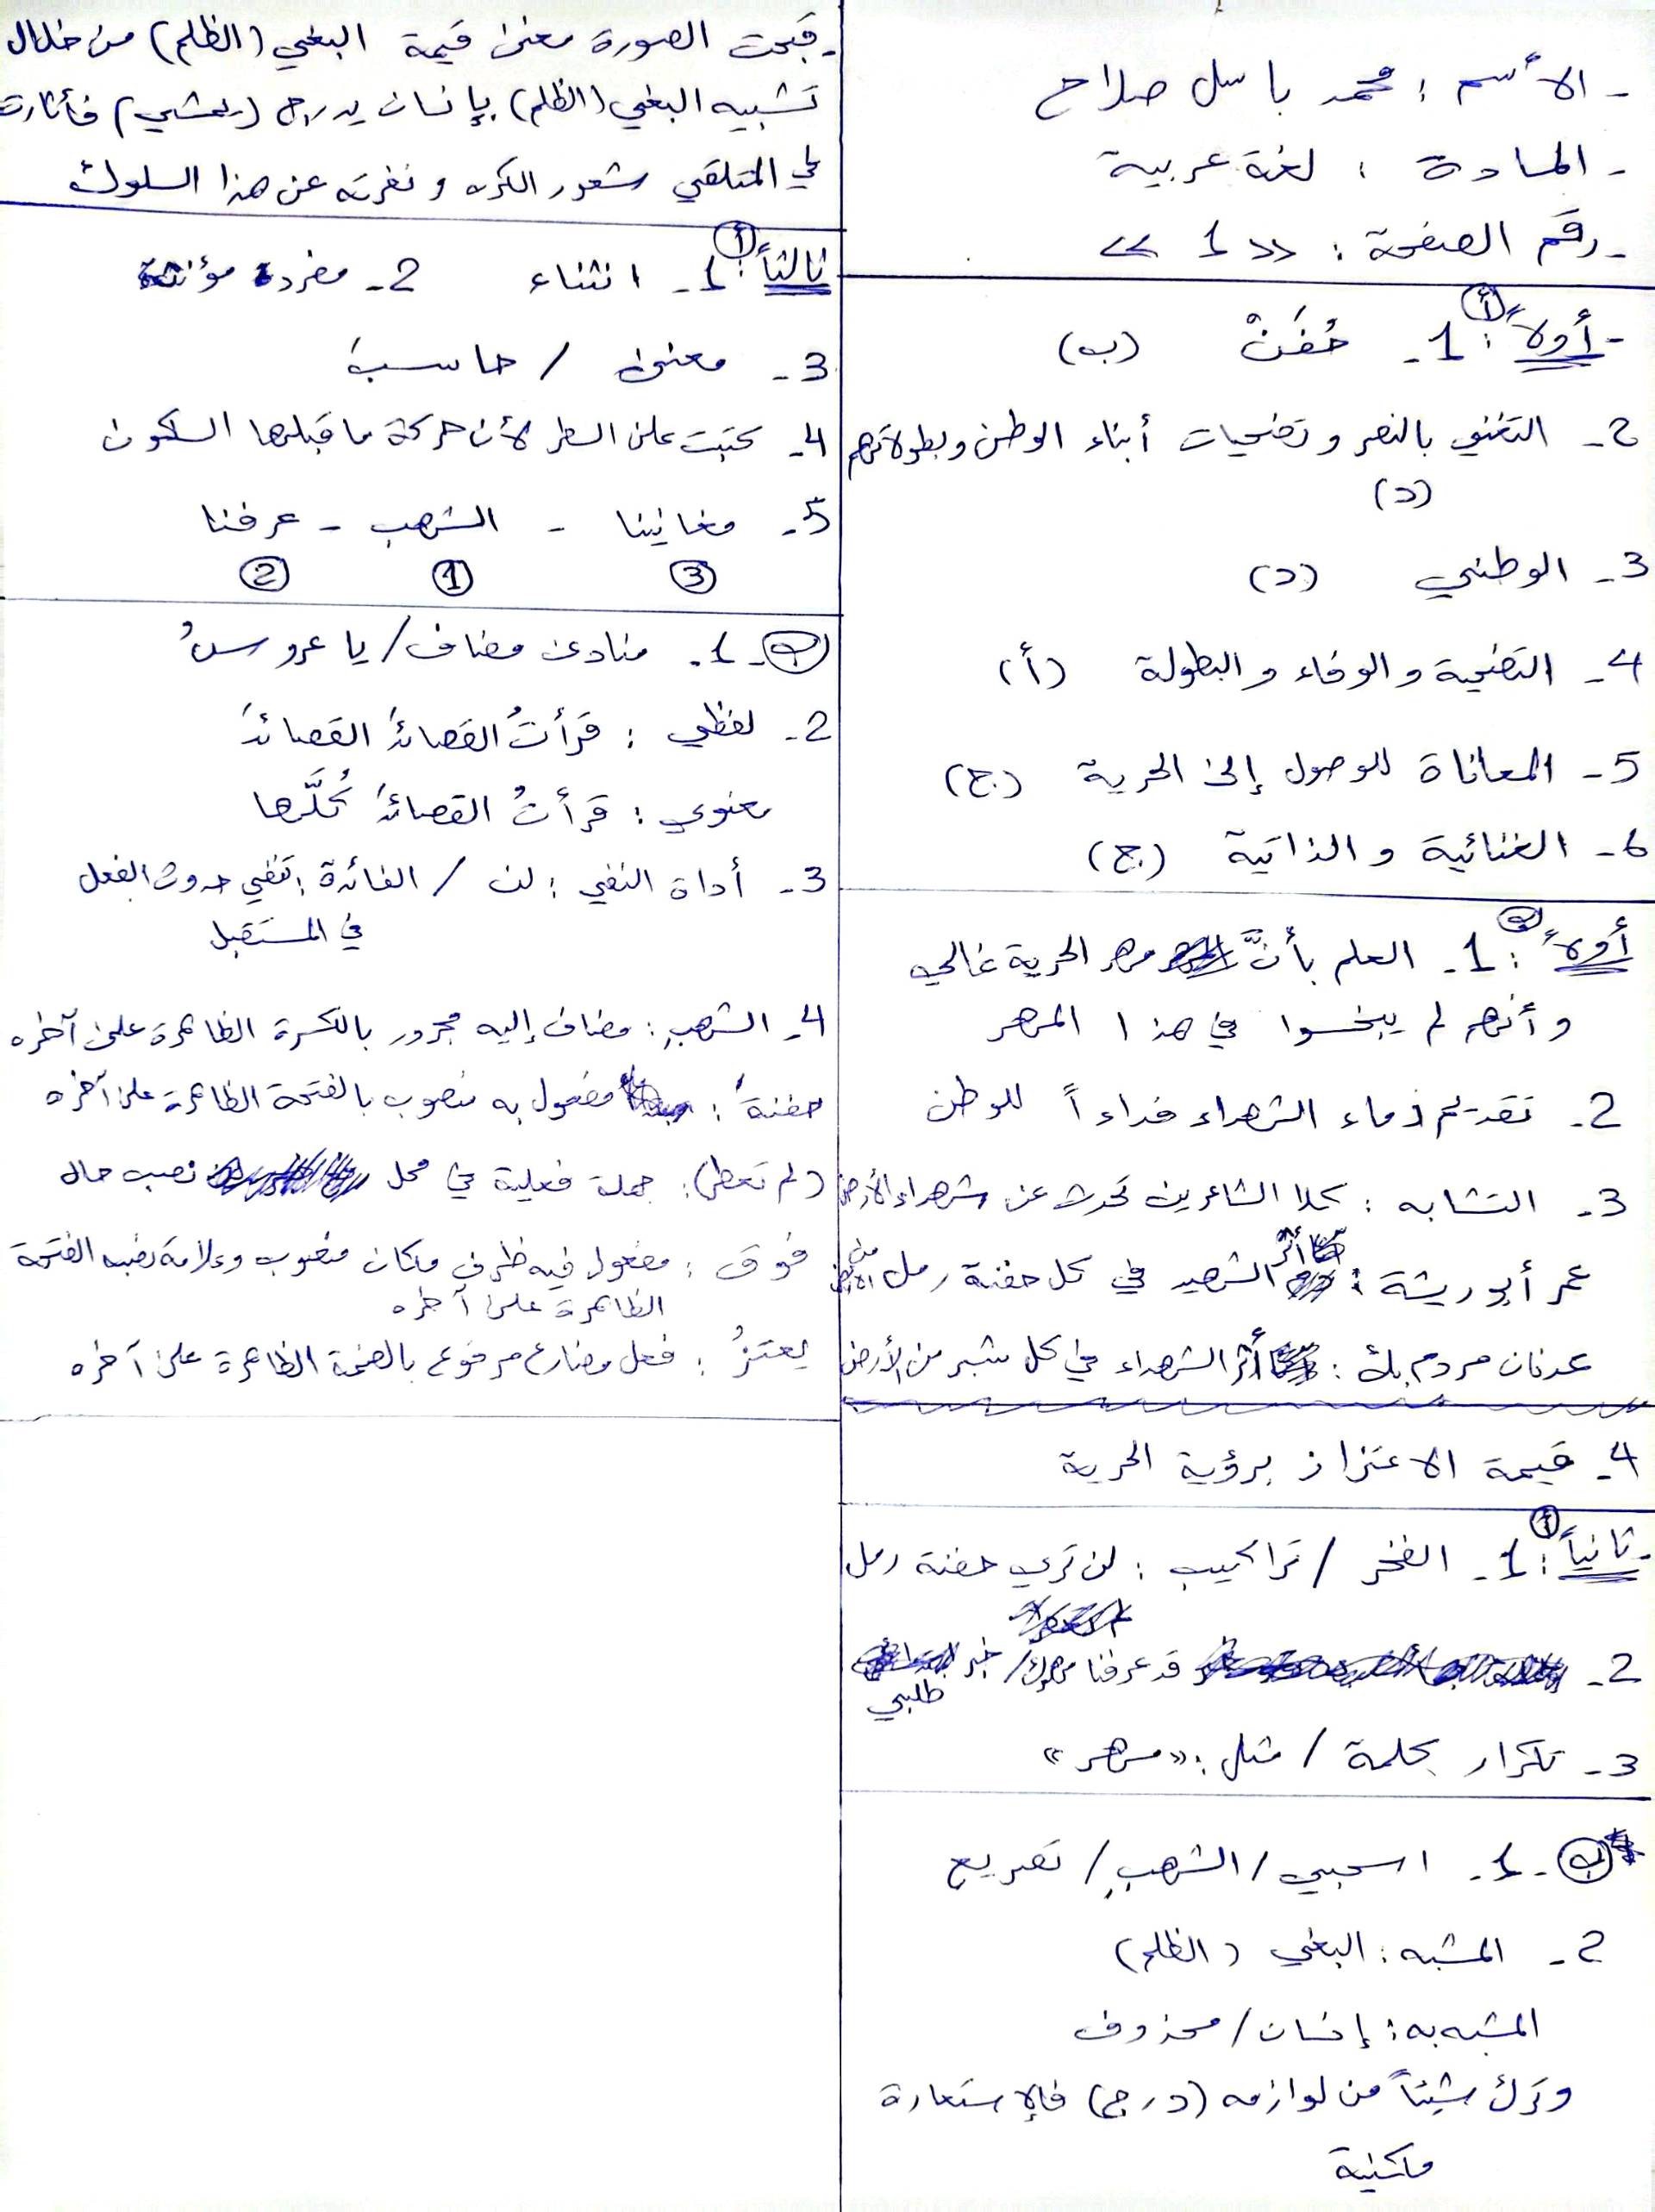 - الأسم : محمد باسل صلاح
- المادة : لغة عربية
- رقم الصفحة : << 1 >>
- أولاً : أ 1- حُفَنْ (ب)
2- التغني بالنصر وتضحيات أبناء الوطن وبطولاتهم
(د)
3- الوطني (د)
4- التضحية والوفاء والبطولة (أ)
5- المعاناة للوصول إلى الحرية (ج)
6- الغنائية والذاتية (ج)
أولاً : ب 1- العلم بأنَّ مهر الحرية غالي
وأنهم لم يبخسوا في هذا المهر
2- تقديم دماء الشهداء فداءاً للوطن
3- التشابه : كلا الشاعرين تحدث عن شهداء الأرض
عمر أبو ريشة : أثر الشهيد في كل حفنة رمل من الأرض
عدنان مردم بك : أثر الشهداء في كل شبر من الأرض
4- قيمة الاعتزاز برؤية الحرية
- ثانياً : أ 1- الفخر / تراكيب : لن تري حفنة رمل
2- قد عرفنا مهرك / خبر
طلبي
3- تكرار كلمة / مثل : «مهر»
ب - 1- اسحبي / الشهبِ / تصريع
2- المشبه : البغي (الظلم)
المشبه به : إنسان / محذوف
وترك شيئاً من لوازمه (درج) فالإستعارة
مكنية
- قبحت الصورة معنى قيمة البغي (الظلم) من خلال
تشبيه البغي (الظلم) بإنسان يدرج (يمشي) فأثارت
في المتلقي شعور الكره ونفرته عن هذا السلوك
ثالثاً : أ 1- انثناء 2- مفردة مؤنثة
3- معنى / حاسبَ
4- كتبت على السطر لأن حركة ما قبلها السكون
5- مغانينا - الشهب - عرفنا
3 1 2
ب - 1- منادى مضاف / يا عروسُ
2- لفظي : قرأتُ القصائدَ القصائدَ
معنوي : قرأتُ القصائدَ كُلَّها
3- أداة النفي : لن / الفائدة : تنفي حدوث الفعل
في المستقبل
4- الشهبِ : مضاف إليه مجرور بالكسرة الظاهرة على آخره
حفنةَ : مفعول به منصوب بالفتحة الظاهرة على آخره
(لم تعطَ) : جملة فعلية في محل نصب حال
فوق : مفعول فيه ظرف مكان منصوب وعلامة نصبه الفتحة
الظاهرة على آخره
يعتزُ : فعل مضارع مرفوع بالضمة الظاهرة على آخره